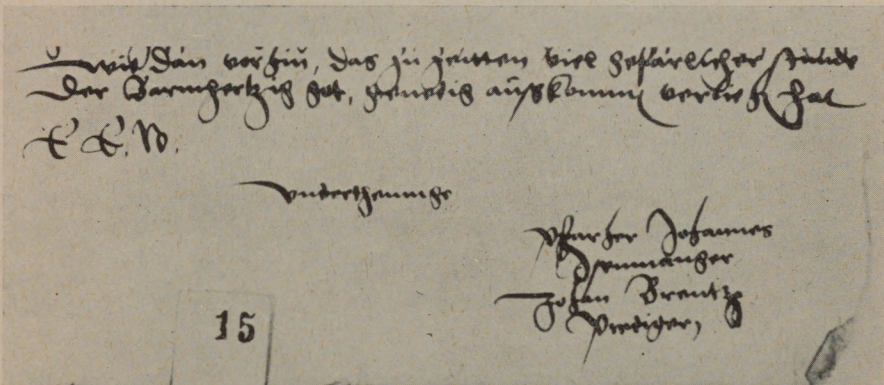 wie dan vorhin, das zu zeitten viel geferlicher stunde
Der Barmhertzig got, genedig auszkomen verlihen hat
E E. W.
vnderthenige
Pfarher Johannes
Isenmanger
Johan Brentz
Prediger,
15